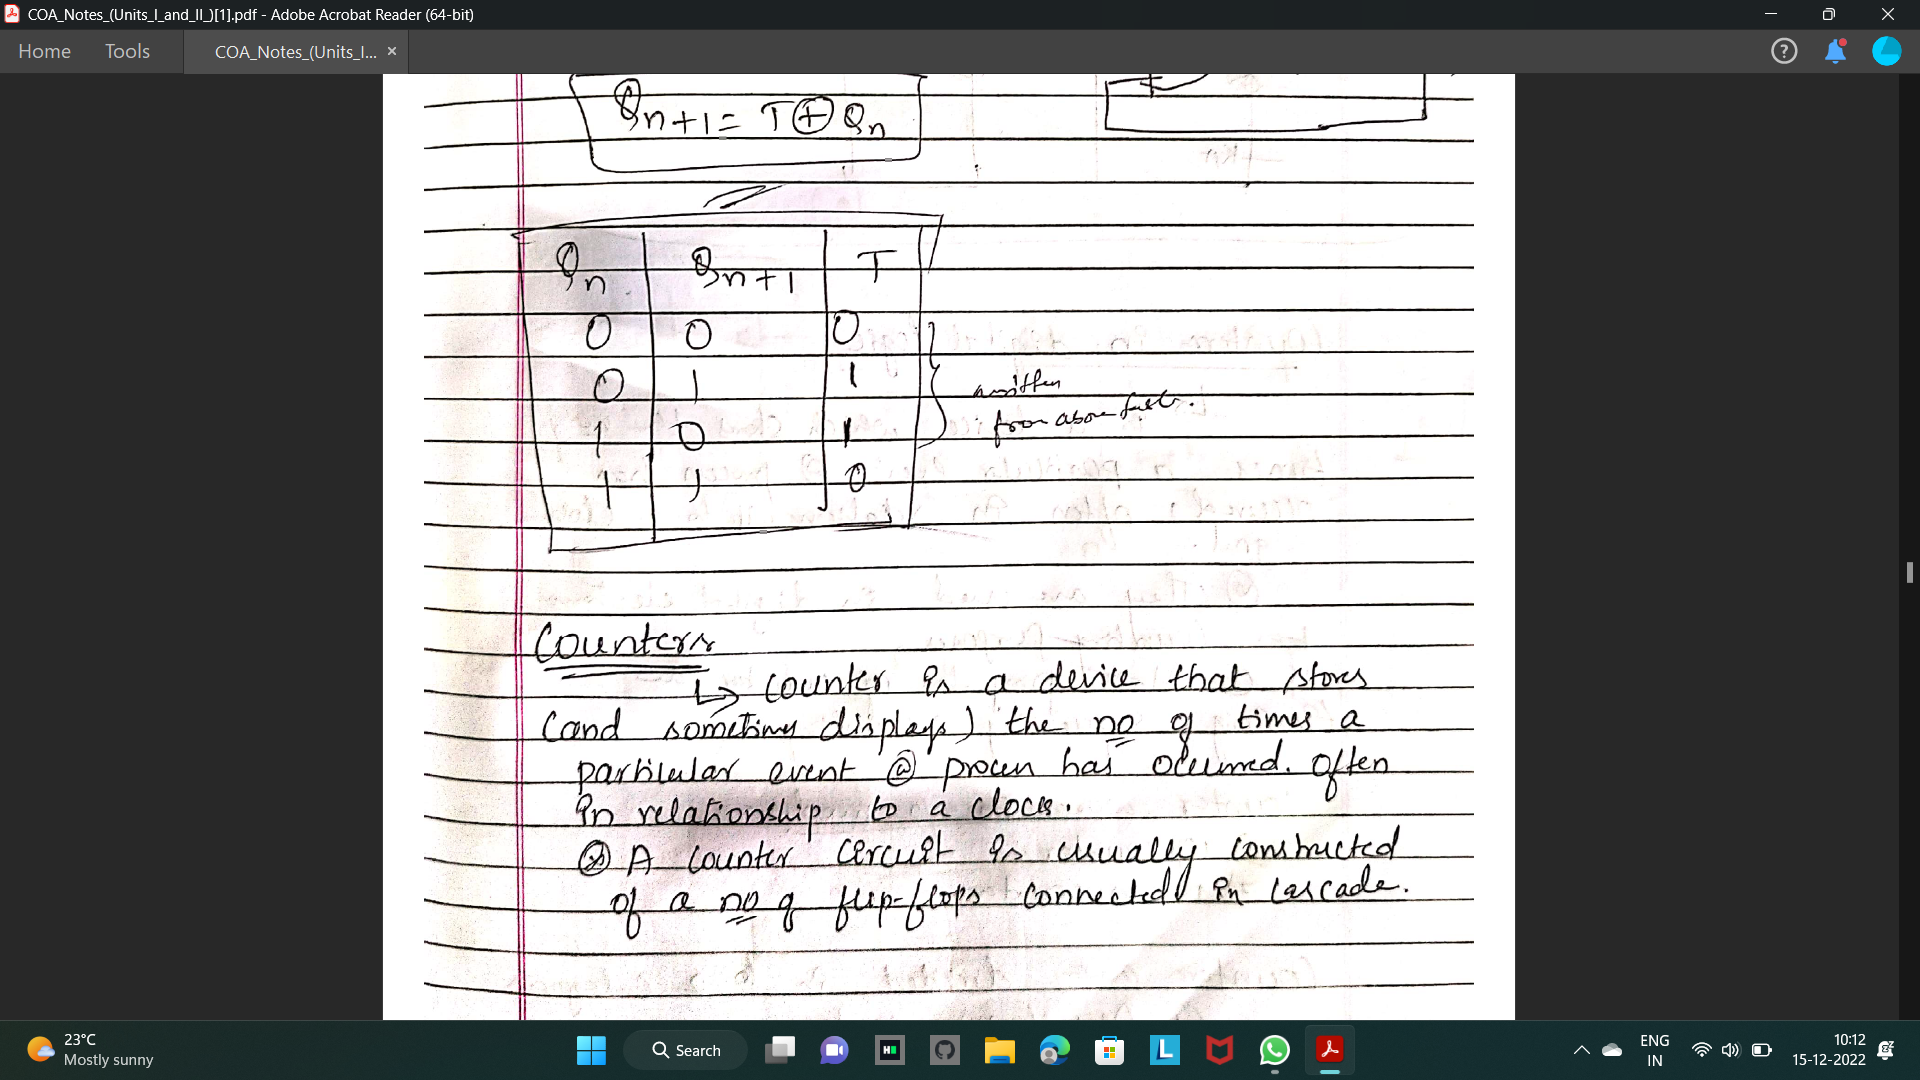 COA_Notes_(Units_I_and_II_)[1].pdf - Adobe Acrobat Reader (64-bit)
Home Tools COA_Notes_(Units_I... ×
Qn+1 = T ⊕ Qn
Qn Qn+1 T
0 0 0
0 1 1
1 0 1
1 1 0
written
from above
Counters
↳ Counter is a device that stores
(and sometimes displays) the no of times a
particular event @ process has occurred. Often
in relationship to a clock.
⊛ A counter circuit is usually constructed
of a no of flip-flops connected in cascade.
23°C
Mostly sunny
Search
ENG
IN
10:12
15-12-2022